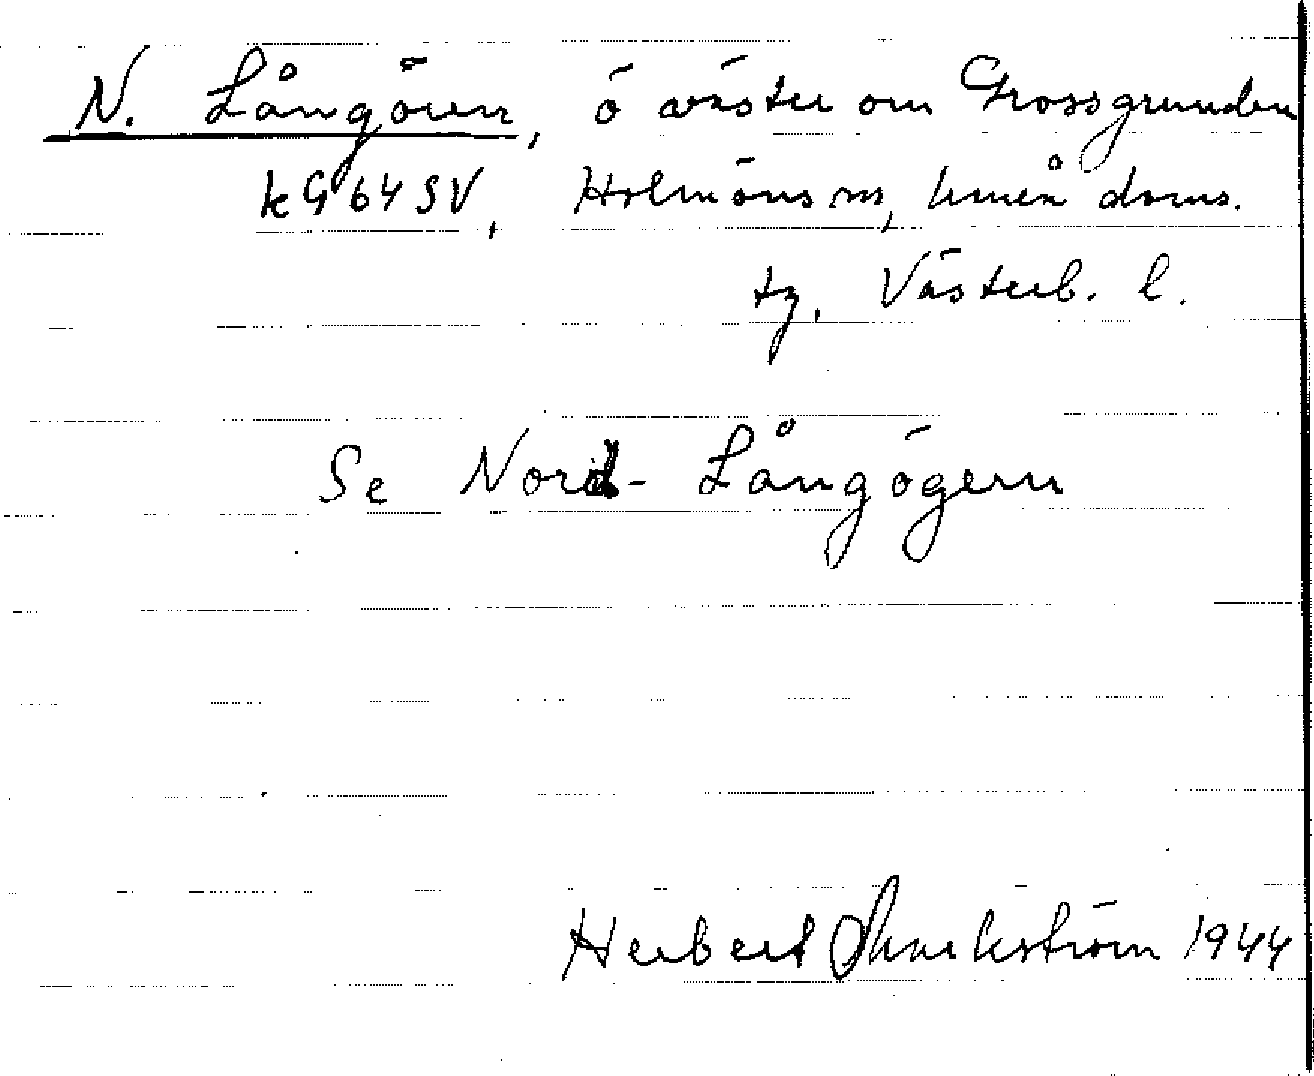 N. Långören, ö väster om Grossgrunden
kG 64 SV, Holmöns sn, Umeå doms.
tg, Västerb. l.
Se Nord-Långögern
Herbert 1944